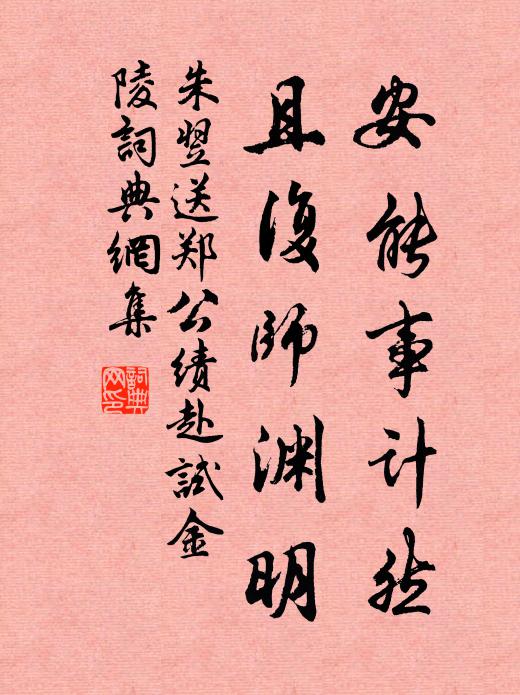 安能事计然
且復師淵明
朱翌送郑公绩赴試金
陵詞典網集
詞典網印